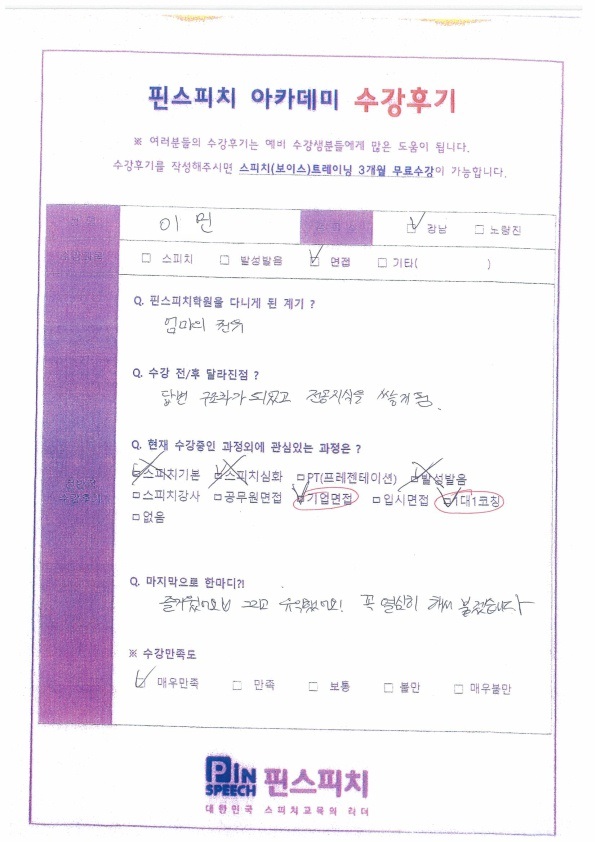 핀스피치 아카데미 수강후기
※ 여러분들의 수강후기는 예비 수강생분들에게 많은 도움이 됩니다.
수강후기를 작성해주시면 스피치(보이스)트레이닝 3개월 무료수강이 가능합니다.
이 민 강남 노량진
스피치 발성발음 면접 기타( )
Q. 핀스피치학원을 다니게 된 계기 ?
엄마의 권유
Q. 수강 전/후 달라진점 ?
답변 구조화가 되었고 전공지식을 쌓게 됨.
Q. 현재 수강중인 과정외에 관심있는 과정은 ?
스피치기본 스피치심화 PT(프레젠테이션) 발성발음
스피치강사 공무원면접 기업면접 입시면접 1대1코칭
없음
Q. 마지막으로 한마디?!
그리고 유익했어요! 꼭 열심히 해서
※ 수강만족도
매우만족 만족 보통 불만 매우불만
PIN SPEECH 핀스피치
대한민국 스피치교육의 리더